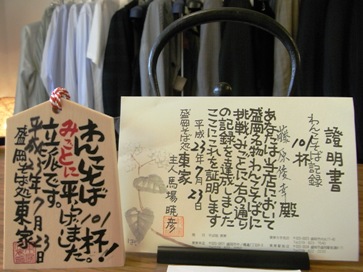 わんこそば
101杯!
みごとに平らげました。
立派です。
平成23年7月23日
盛岡そば処 東家
證明書
わんこそば記録
101杯
殿
あなたは当店において
盛岡名物わんこそばに
挑戦しみごとに右の通り
の記録を達成しました
のでここに之を証明します
平成23年7月23日
盛岡そば処 東家
主人 馬場暁彦